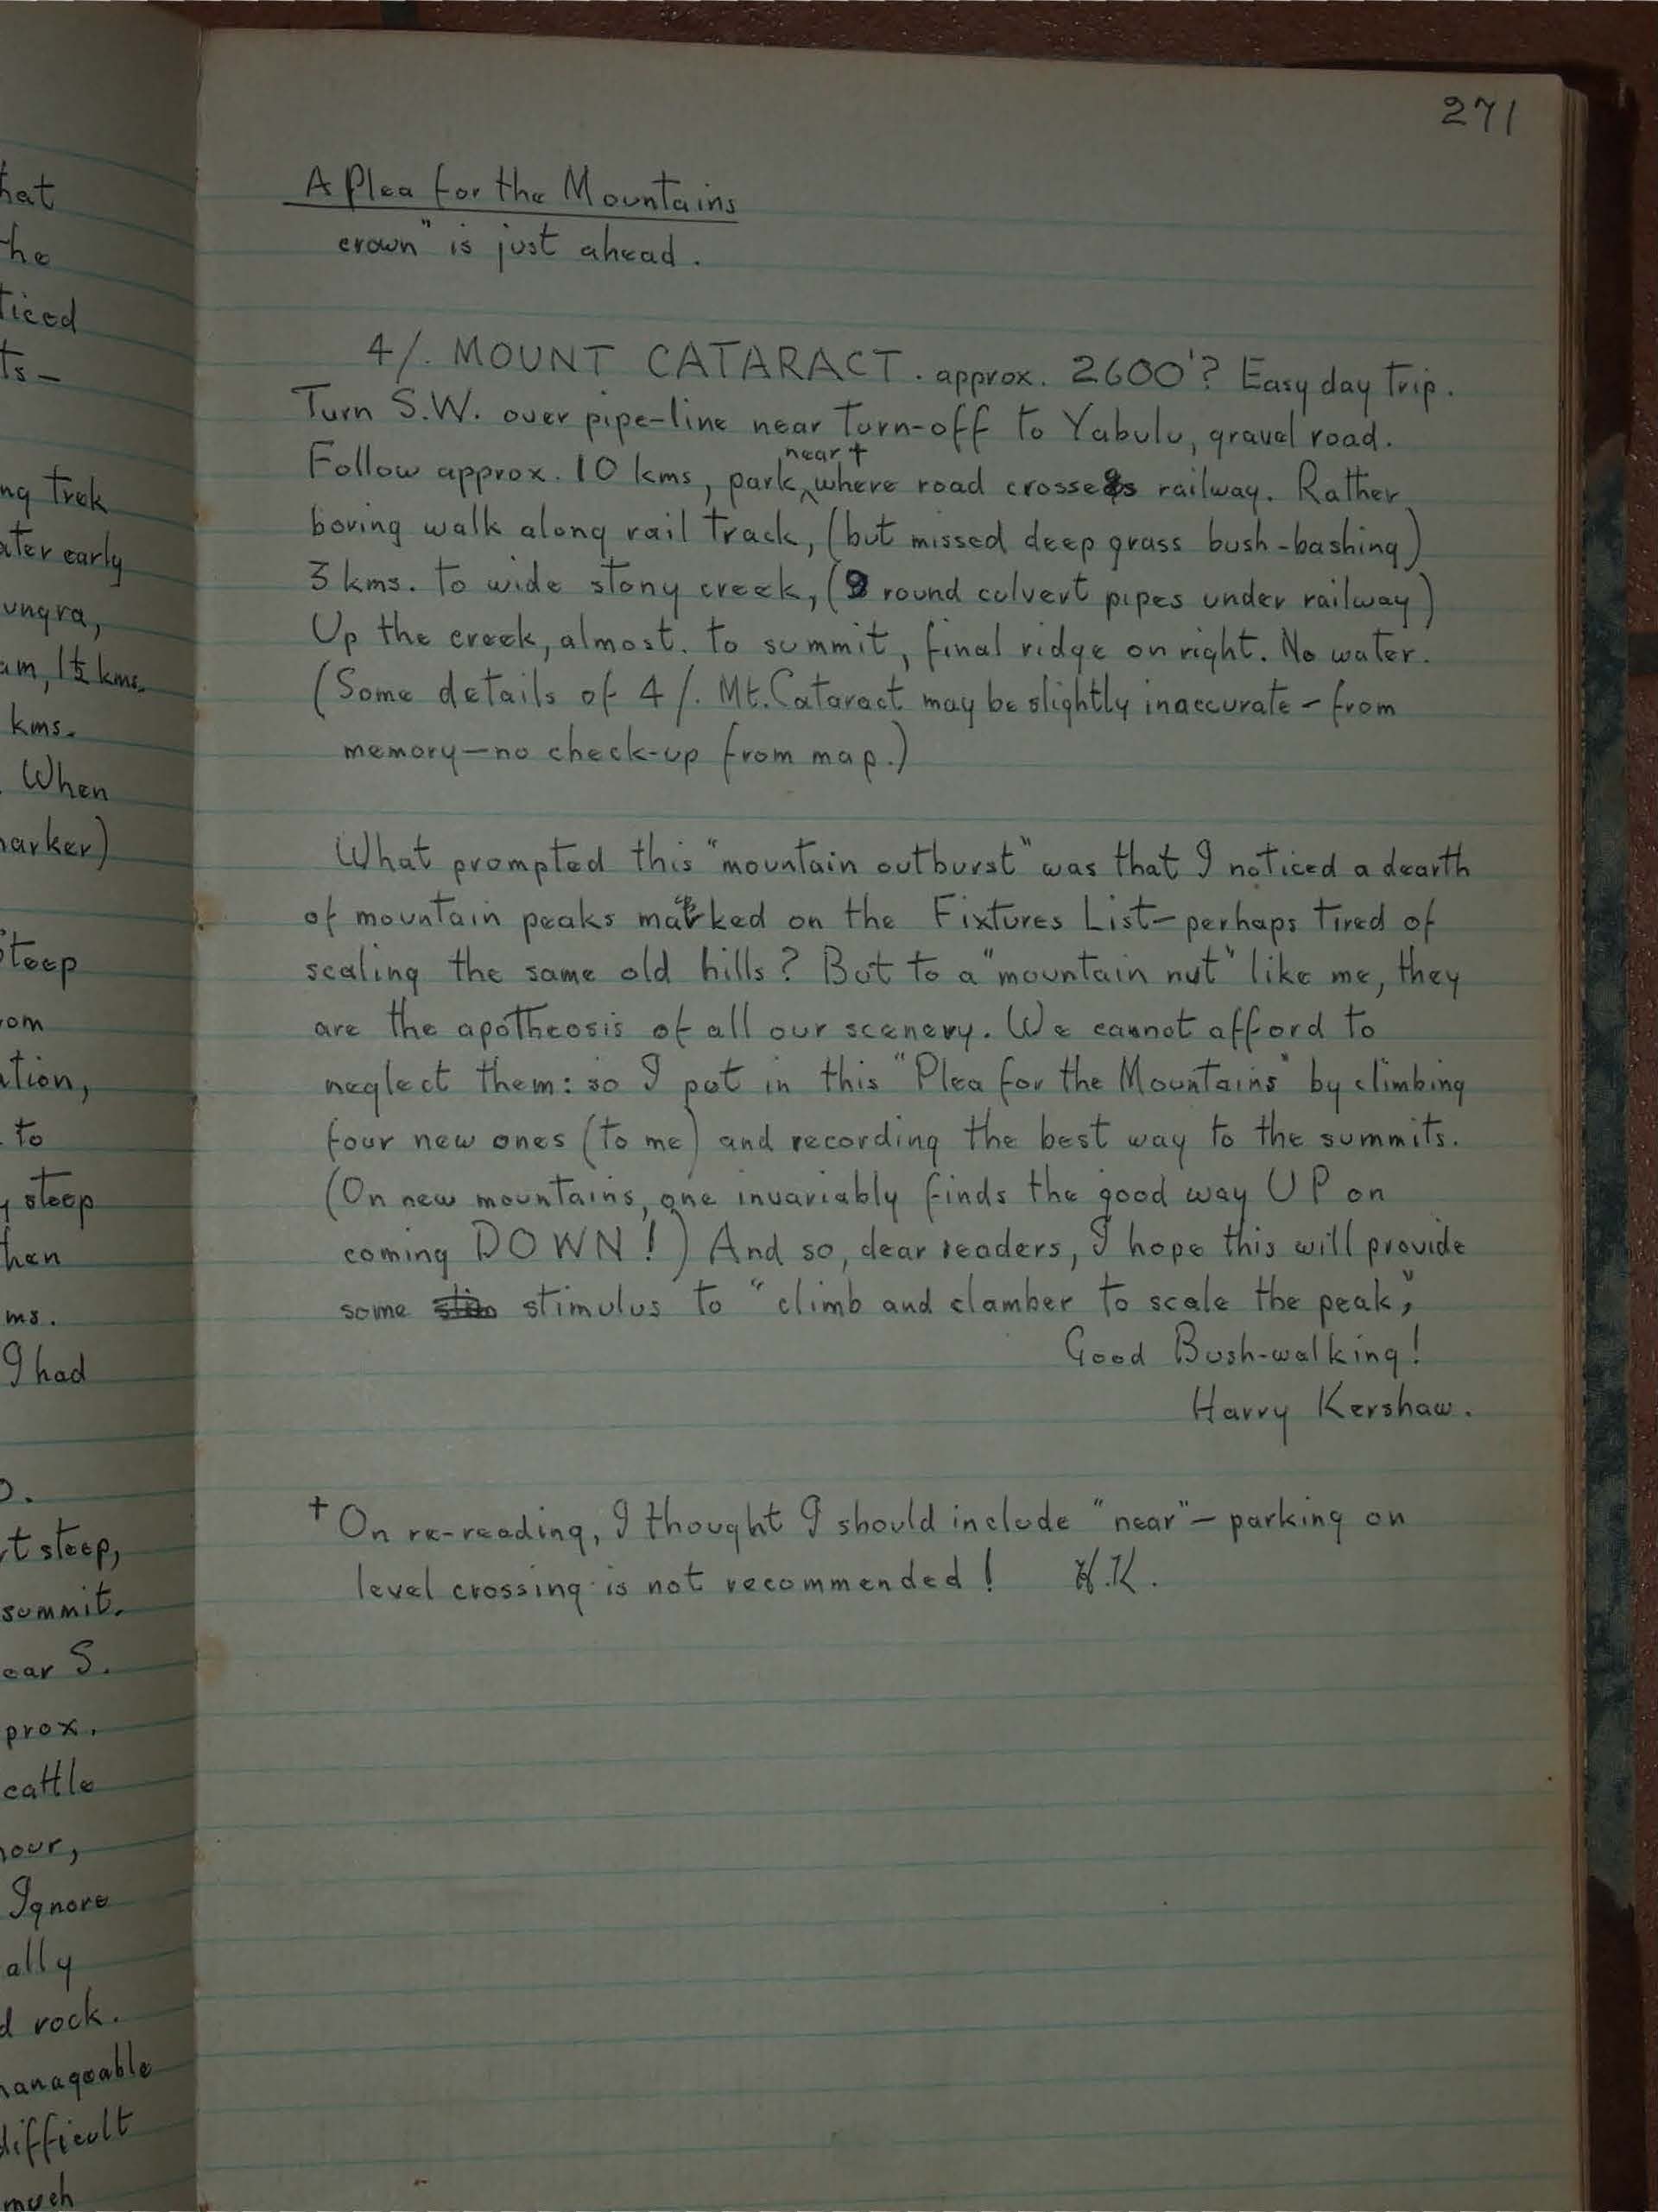 hat
he
ticed
ts –
ng trek
ater early
ungra,
am, 1½ kms.
kms.
. When
marker)
steep
rom
ation,
. to
y steep
hen
ms.
I had
O.
t steep,
summit.
ear S.
prox.
cattle
hour,
Ignore
ally
d rock.
manageable
difficult
much
271
A Plea for the Mountains
crown" is just ahead.
4/. MOUNT CATARACT. approx. 2600'? Easy day trip.
Turn S.W. over pipe-line near turn-off to Yabulu, gravel road.
Follow approx. 10 kms, park near + where road crosses railway. Rather
boring walk along rail track, (but missed deep grass bush-bashing)
3 kms. to wide stony creek, ( round culvert pipes under railway)
Up the creek, almost. to summit, final ridge on right. No water.
(Some details of 4/. Mt. Cataract may be slightly inaccurate – from
memory – no check-up from map.)
What prompted this "mountain outburst" was that I noticed a dearth
of mountain peaks marked on the Fixtures List – perhaps tired of
scaling the same old hills? But to a "mountain nut" like me, they
are the apotheosis of all our scenery. We cannot afford to
neglect them: so I put in this "Plea for the Mountains" by climbing
four new ones (to me) and recording the best way to the summits.
(On new mountains, one invariably finds the good way UP on
coming DOWN!) And so, dear readers, I hope this will provide
some stimulus to "climb and clamber to scale the peak,"
Good Bush-walking!
Harry Kershaw.
+ On re-reading, I thought I should include "near" – parking on
level crossing is not recommended! H.K.